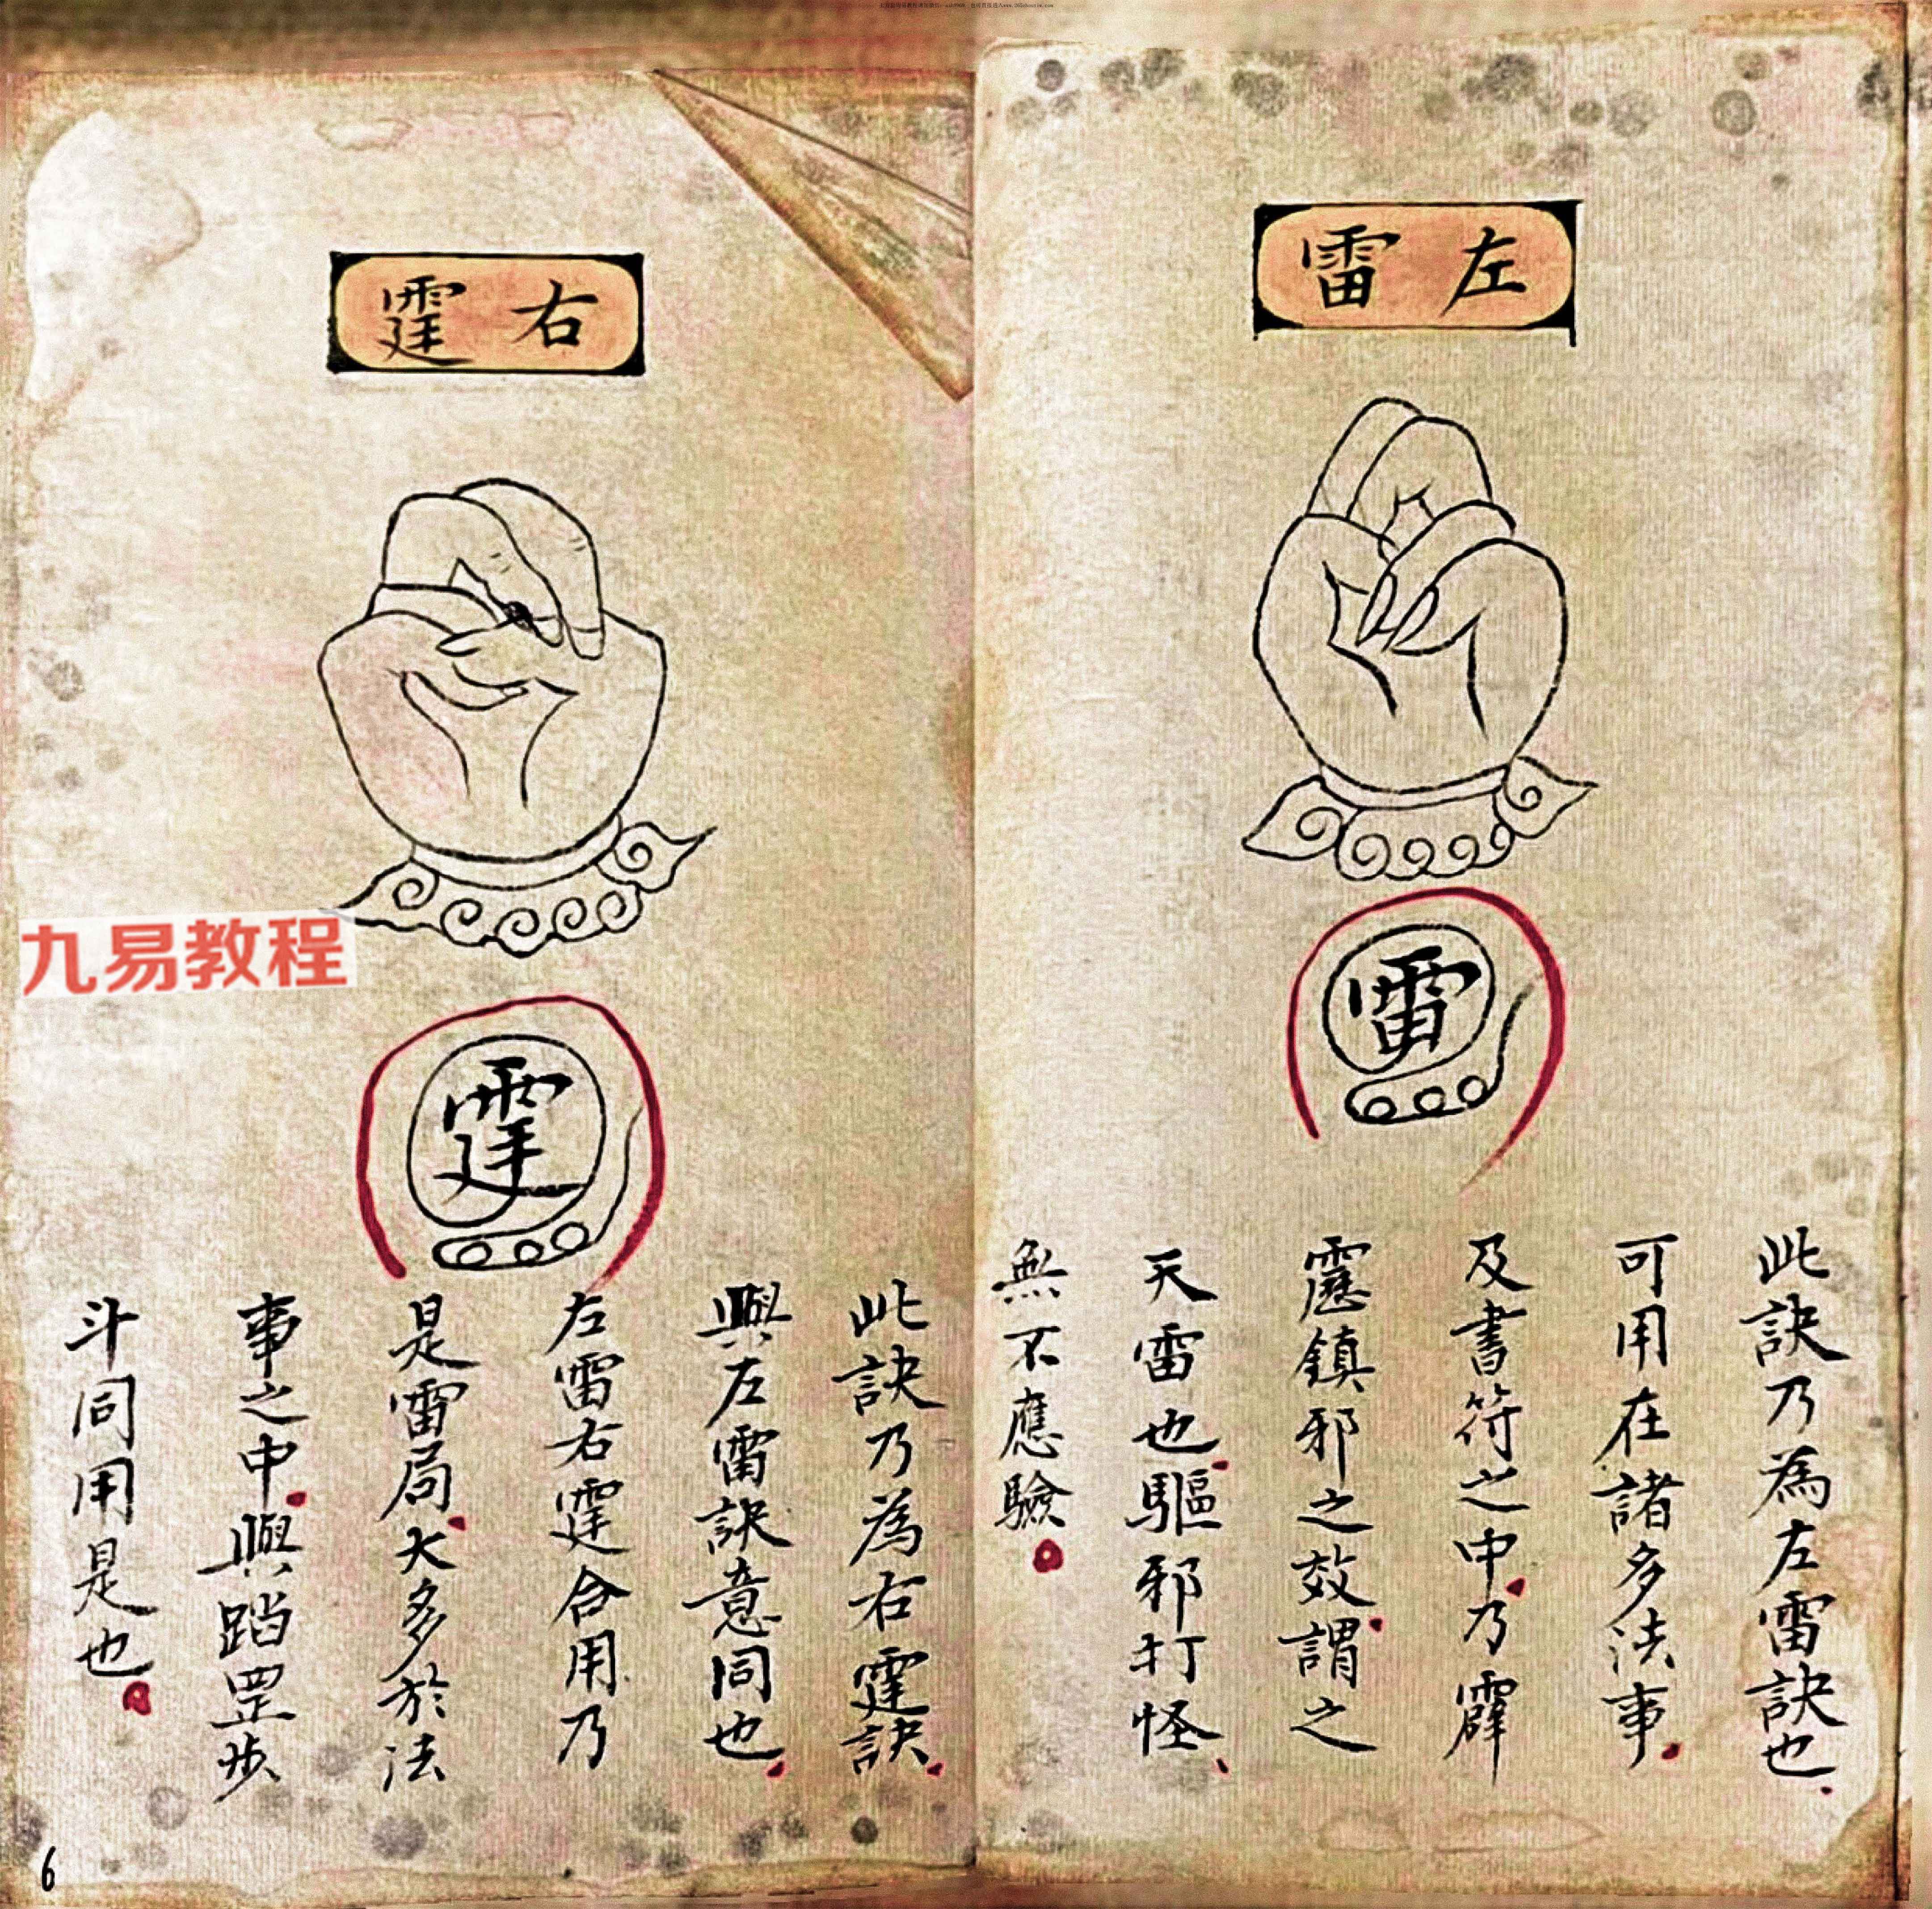 左雷
雷
此訣乃為左雷訣也、
可用在諸多法事、
及書符之中、乃霹
靂鎮邪之效、謂之
天雷也、驅邪打怪、
無不應驗。
右霆
霆
此訣乃為右霆訣、
與左雷訣意同也、
左雷右霆合用乃
是雷局、大多於法
事之中、與踏罡步
斗同用是也。
九易教程
6